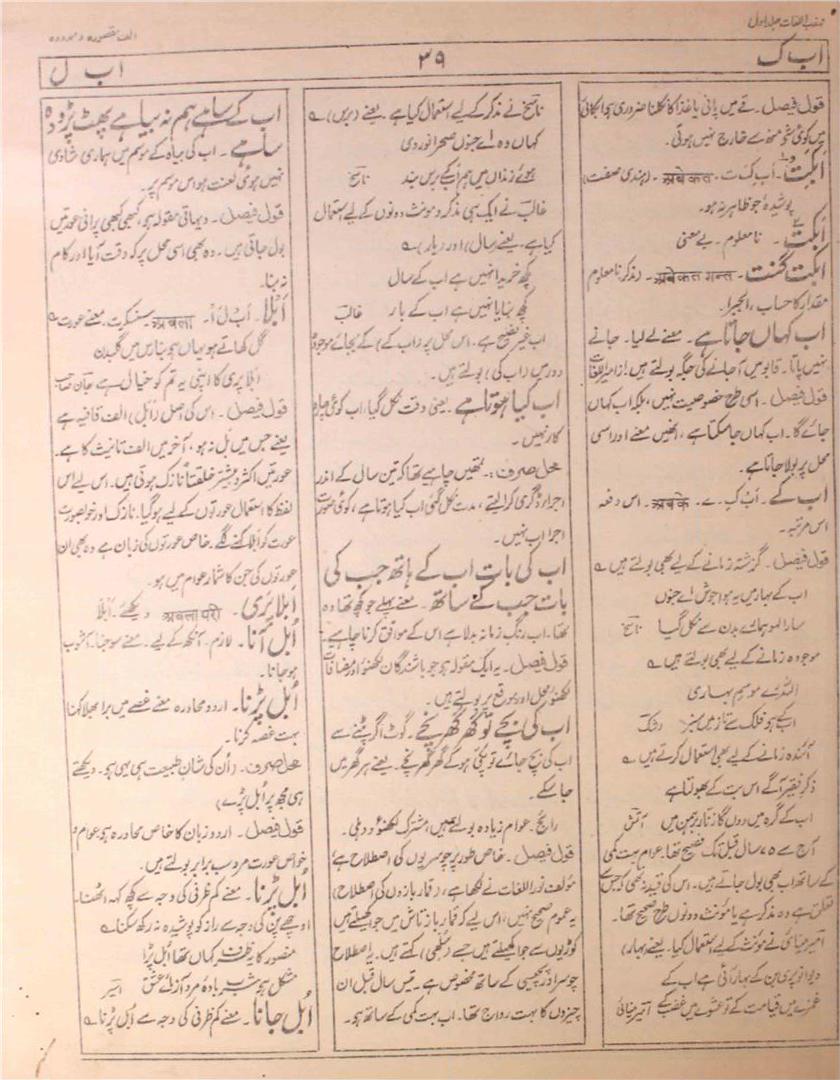 مہذب اللغات جلد اول
الف مقصورہ و ممدودہ
اب ک
۳۹
اب ل
قول فیصل۔ قے میں پانی یا غذا کا نکلنا ضروری ہے ابکائی
میں کوئی شے منھ سے خارج نہیں ہوتی۔
اَبکَت۔ اَب کَ ت۔ अबेकत۔ (ہندی صفت)
پوشیدہ جو ظاہر نہ ہو۔
اَبکت۔ نامعلوم۔ بے معنی
ابکت گنت۔ अबेकत गन्त۔ (مذکر) نامعلوم
مقدار کا حساب، الجبرا۔
اب کہاں جاتا ہے۔ معنے لے لیا۔ جانے
نہیں پاتا۔ قابو میں آ جانے کی جگہ بولتے ہیں (از امیر اللغات)
قول فیصل۔ اسی طرح خصوصیت نہیں، بلکہ اب کہاں
جائے گا۔ اب کہاں جا سکتا ہے، انھیں معنے اور اسی
محل پر بولا جاتا ہے۔
اب کے۔ اَب کِ۔ ے۔ अबके۔ اس دفعہ
اس مرتبہ۔
قول فیصل۔ گزشتہ زمانے کے لیے بھی بولتے ہیں ؎
اب کے بہار میں یہ ہوا جوش اے جنوں
سارا لہو ہمارے بدن سے نکل گیا ناسخ
موجودہ زمانے کے لیے بھی بولتے ہیں ؎
اللہ رے موسم بہاری
ابکے ہو فلک سے تا زمیں سبز رشک
آئندہ زمانے کے لیے بھی استعمال کرتے ہیں ؎
ذکر فقیر آگے اس بت کے بھولتا ہے
اب کے گرہ میں دوں گا زنار برہمن میں آتش
آج سے ۷۵ سال قبل تک فصیح تھا۔ عوام بہت کمی
کے ساتھ اب بھی بول جاتے ہیں۔ اس کی قید نہ تھی کہ جس سے
تعلق ہے وہ مذکر ہے یا مؤنث دونوں طرح صحیح تھا۔
امیر مینائی نے مؤنث کے لیے استعمال کیا۔ یعنے (بہار)
دیوانو پری بن کے بہار آئی ہے اب کے
غمزے میں قیامت کے تو عشوے میں غضب کے امیر مینائی
ناسخ نے مذکر کے لیے استعمال کیا ہے۔ یعنے (برس) ؎
کہاں وہ اے جنوں صحرا نوردی
ہوئے زنداں میں ہم ابکے برس بند ناسخ
غالب نے ایک ہی مذکر و مونث دونوں کے لیے استعمال
کیا ہے۔ یعنے (سال) اور (بار) ؎
کچھ خریدا نہیں ہے اب کے سال
کچھ بنایا نہیں ہے اب کے بار غالب
اب غیر فصیح ہے۔ اس محل پر (اب کے) کے بجائے موجودہ
دور میں (اب کی) بولتے ہیں۔
اب کیا ہوتا ہے۔ یعنی وقت نکل گیا، اب کوئی چارہ
کار نہیں۔
محل صرف:۔ تمھیں چاہیے تھا کہ تین سال کے اندر
اجراء ڈگری کرا لیتے، مدت نکل گئی اب کیا ہوتا ہے، کوئی صورت
اجرا اب نہیں۔
اب کی بات اب کے ہاتھ جب کی
بات جب کے ساتھ۔ معنے پہلے جو کچھ تھا وہ
تھا۔ اب رنگ زمانہ بدلا ہے اس کے موافق کرنا چاہیے۔
قول فیصل۔ یہ ایک مقولہ ہی جو باشندگان لکھنؤ و مضافات
لکھنؤ محل اور موقع پر بولتے ہیں۔
اب کی بچے تو گھر گھر بچے۔ گوٹ اگر پٹنے سے
اب کی بچ جائے تو پکی ہو کے گھر گھر بچے۔ یعنے ہر گھر میں
جا سکے۔
رائج۔ عوام زیادہ بولتے ہیں، مشترک لکھنؤ و دہلی۔
قول فیصل۔ خاص طور پر چوسریوں کی اصطلاح ہے
مؤلف نور اللغات نے لکھا ہے، (قمار بازوں کی اصطلاح)
یہ عموم صحیح نہیں، اس لیے کہ قمار باز تاش میں جوا کھیلتے ہیں
کوڑیوں سے جوا کھیلتے ہیں جسے ( ) کہتے ہیں۔ یہ اصطلاح
چوسر اور پچیسی کے ساتھ مخصوص ہے۔ تیس سال قبل ان
چیزوں کا بہت رواج تھا۔ اب بہت کمی کے ساتھ ہی۔
اب کے ساہے ہم نہ بیاہے پھٹ پڑو وہ
ساہے۔ اب کی بیاہ کے موسم میں ہماری شادی
نہیں ہوئی لعنت ہو اس موسم پر۔
قول فیصل۔ دیہاتی مقولہ ہی، کبھی کبھی پرانی عورتیں
بول جاتی ہیں۔ وہ بھی اسی محل پر کہ وقت آیا اور کام
نہ بنا۔
اَبلا۔ اَب لَ اْ۔ अबला۔ سنسکرت۔ معنے عورت ؎
گل کھاتے ہو یہاں ہی بنارس میں گلبدن
ابلا پری کا اپنی یہ تم کو خیال ہے جان صاحب
قول فیصل۔ اس کی اصل (ابل) الف نافیہ ہے
یعنے جس میں بل نہ ہو، آخر میں الف تانیث کا ہے۔
عورتیں اکثر و بیشتر خلقتاً نازک ہوتی ہیں۔ اس لیے اس
لفظ کا استعمال عورتوں کے لیے ہو گیا۔ نازک اور خوبصورت
عورت کو ابلا کہنے لگے۔ خاص عورتوں کی زبان ہے وہ بھی ان
عورتوں کی جن کا شمار عوام میں ہو۔
ابلا پری۔ अबला परी دیکھیے۔ ابلا
اُبل آنا۔ لازم۔ آنکھ کے لیے۔ معنے سوجنا۔ آشوب
ہو جانا۔
اُبل پڑنا۔ اردو محاورہ معنے غصے میں برا بھلا کہنا
بہت غصہ کرنا۔
محل صرف۔ (اُن کی شان طبیعت ہی یہی ہو۔ دیکھتے
ہی مجھ پر ابل پڑے)
قول فیصل۔ اردو زبان کا خاص محاورہ ہی عوام و
خواص عورت مرد سب برابر بولتے ہیں۔
اُبل پڑنا۔ معنے کم ظرفی کی وجہ سے کچھ کہہ اٹھنا۔
اوچھے پن کی وجہ سے راز کو پوشیدہ نہ رکھ سکنا ؎
منصور کا یہ ظرف کہاں تھا ابل پڑا
مشکل ہی شرب بادۂ مرد آزمائے عشق امیر
اُبل جانا۔ معنے کم ظرفی کی وجہ سے ابل پڑنا ؎